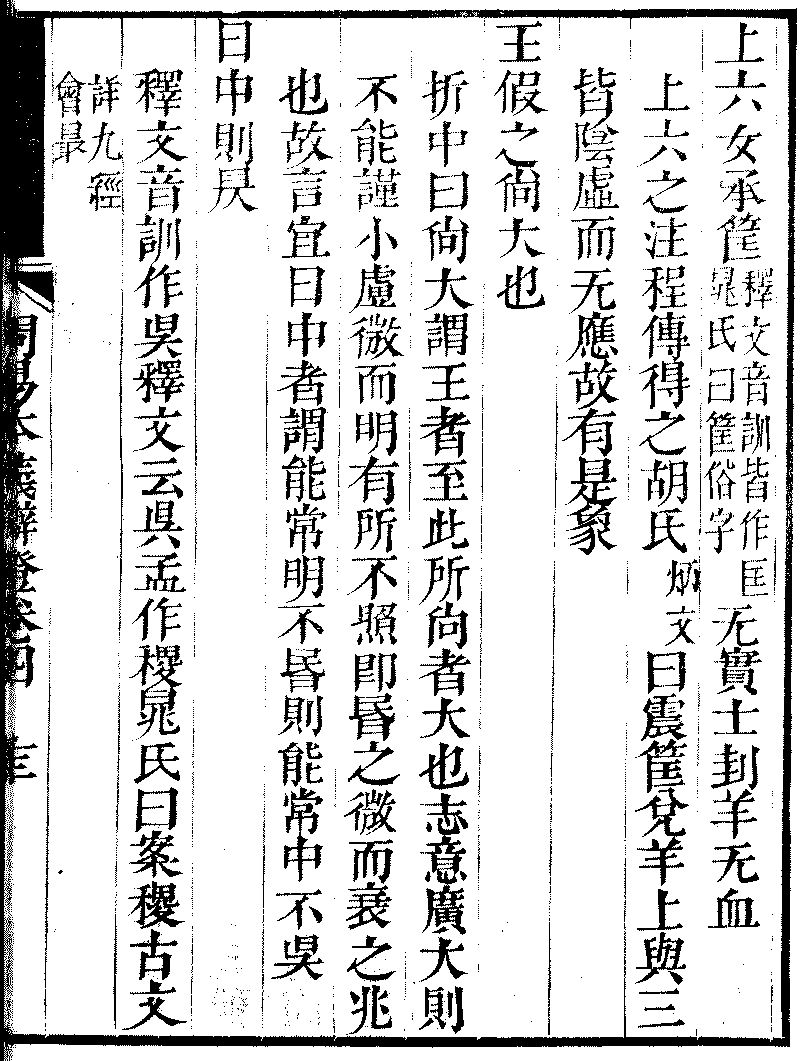 上六女承筐釋文音訓皆作匡晁氏曰筐俗字无實士刲羊无血
上六之注程傳得之胡氏炳文曰震筐兌羊上與三
皆陰虛而无應故有是象
王假之尙大也
折中曰尙大謂王者至此所尙者大也志意廣大則
不能謹小慮微而明有所不照卽昏之微而衰之兆
也故言宜日中者謂能常明不昏則能常中不昗
日中則昃
釋文音訓作昗釋文云昗孟作稷晁氏曰案稷古文
詳九經會最
周易本義辨證卷四